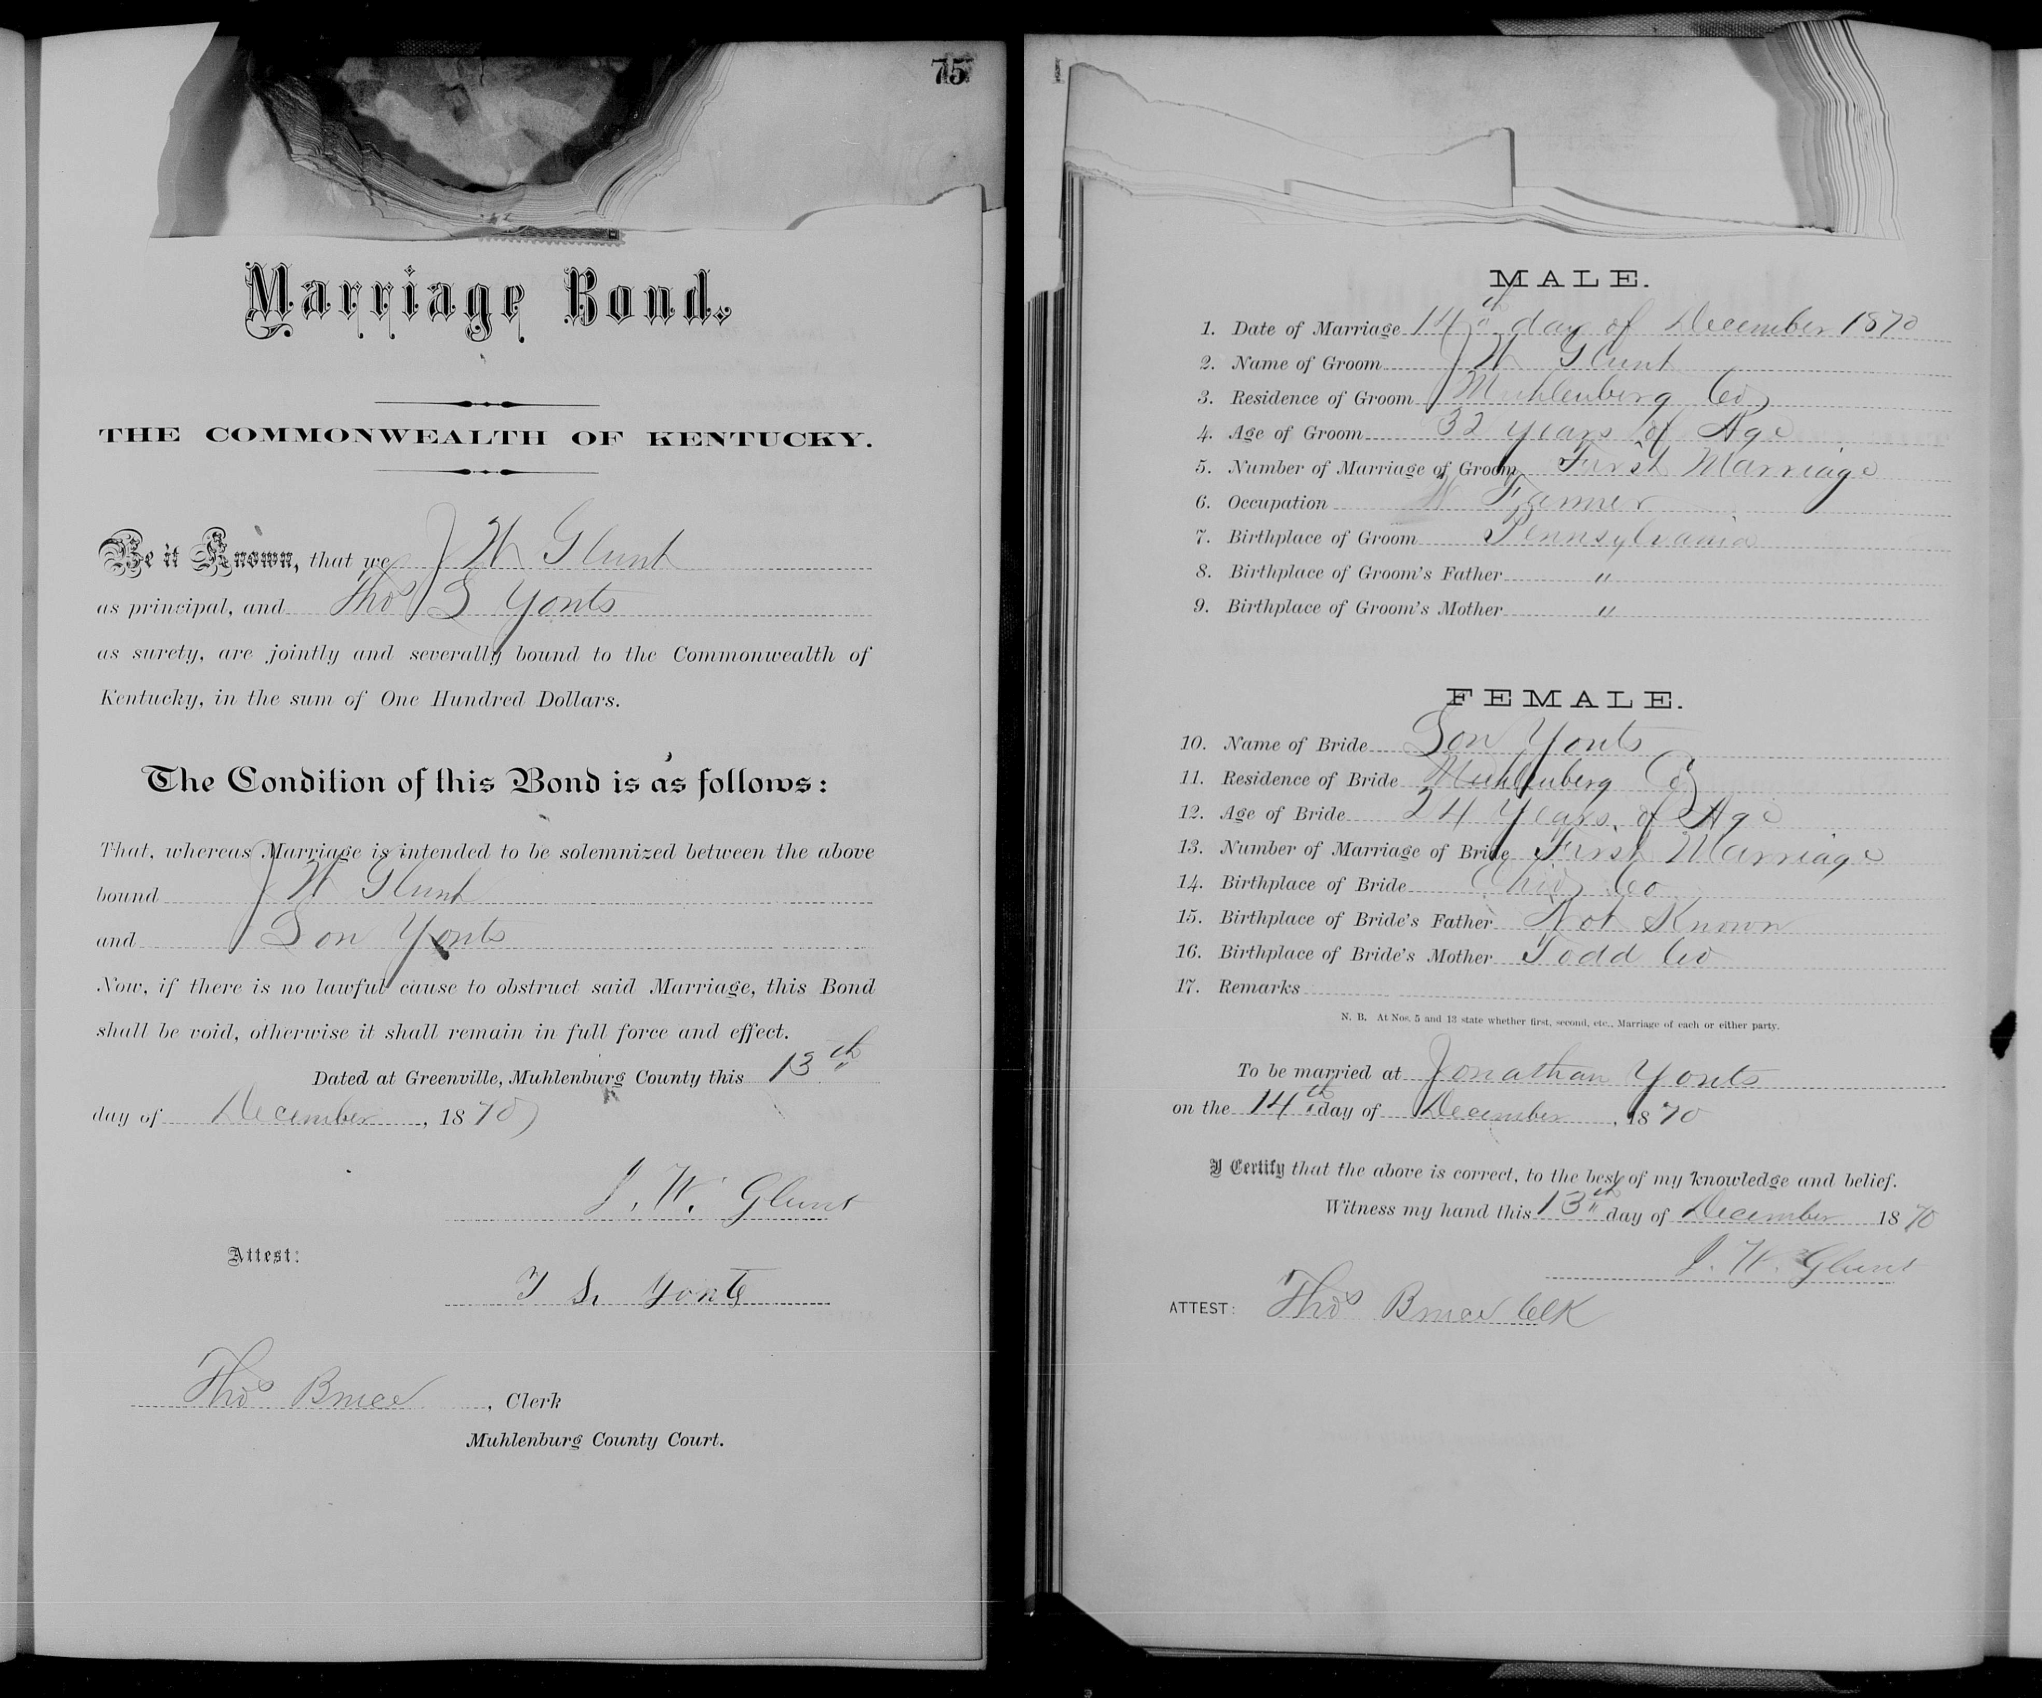 75
Marriage Bond.
THE COMMONWEALTH OF KENTUCKY.
Be it Known, that we J W Glunt
as principal, and Thos S Yonts
as surety, are jointly and severally bound to the Commonwealth of
Kentucky, in the sum of One Hundred Dollars.
The Condition of this Bond is as follows:
That, whereas Marriage is intended to be solemnized between the above
bound J W Glunt
and Lou Yonts
Now, if there is no lawful cause to obstruct said Marriage, this Bond
shall be void, otherwise it shall remain in full force and effect.
Dated at Greenville, Muhlenburg County this 13th
day of December, 1870
J. W. Glunt
Attest:
T S. Yonts
Thos Bruce, Clerk
Muhlenburg County Court.
MALE.
1. Date of Marriage 14th day of December 1870
2. Name of Groom J W Glunt
3. Residence of Groom Muhlenberg Co
4. Age of Groom 32 years of Age
5. Number of Marriage of Groom First Marriage
6. Occupation Farmer
7. Birthplace of Groom Pennsylvania
8. Birthplace of Groom's Father "
9. Birthplace of Groom's Mother "
FEMALE.
10. Name of Bride Lou Yonts
11. Residence of Bride Muhlenberg Co
12. Age of Bride 24 years of Age
13. Number of Marriage of Bride First Marriage
14. Birthplace of Bride Ohio Co
15. Birthplace of Bride's Father Not Known
16. Birthplace of Bride's Mother Todd Co
17. Remarks
N. B. At Nos. 5 and 13 state whether first, second, etc., Marriage of each or either party.
To be married at Jonathan Yonts
on the 14th day of December, 1870
I Certify that the above is correct, to the best of my knowledge and belief.
Witness my hand this 13th day of December 1870
J. W. Glunt
ATTEST: Thos Bruce Clk